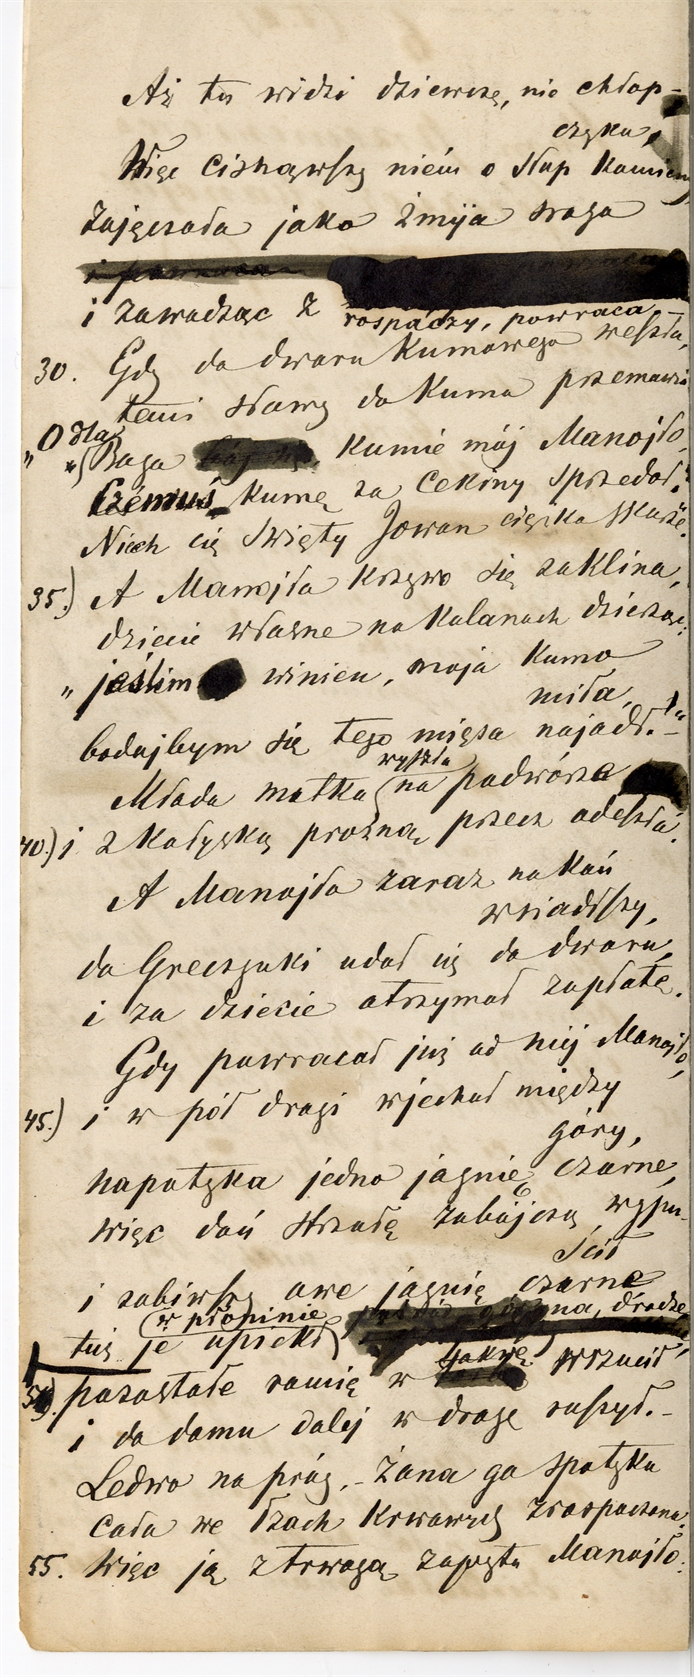 Aż tu widzi dziewczę, nie chłop-
czyka,
Więc cisnąwszy niém o słup kamienny
Zajęczała jako żmija sroga
i zawodząc z rospaczy, powraca
30. Gdy do dworu Kumowego weszła,
temi słowy do Kuma przemawia
„O dla
*) Boga Kumie mój Manojło,
Czémuś kumę za cekiny sprzedał?
Niech cię Święty Jowan ciężko skarże.
35.) A Manojło krzywo się zaklina,
dziecie własne na kolanach dzierżąc;
„jeślim winien, moja Kumo
miła,
bodajbym się tego mięsa najadł."–
Młoda matka wyszła na podwórze
40.) i z kołyską prożną precz odeszła.
A Manojło zaraz na koń
wsiadłszy,
do Greczynki udał się do dworu,
i za dziecie otrzymał zapłatę.
Gdy powracał już od niéj Manojło,
45.) i w pół drogi wjechał między
góry,
napotyka jedno jagnię czarne,
więc dań strzałę zabójczą wypu-
ścił
i zabiwszy owe jagnię czarne
tuż je upiekł w płoninie drodze,
pozostałe ramię w sakwę wrzucił
i do domu dalej w drogę ruszył.–
Ledwo na próg,– żona go spotyka
cała we łzach krwawych zrospaczona.
55. Więc ją z trwogą zapyta Manojło: